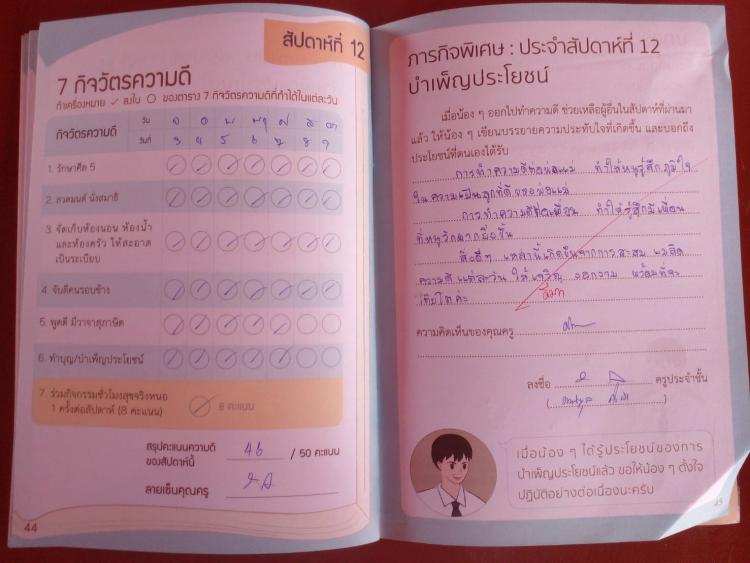 สัปดาห์ที่ 12
7 กิจวัตรความดี
ทำเครื่องหมาย ✓ ลงใน ○ ของตาราง 7 กิจวัตรความดีที่ทำได้ในแต่ละวัน
กิจวัตรความดี
วัน จ อ พ พฤ ศ ส อา
วันที่ 3 4 5 6 7 8 9
1. รักษาศีล 5
2. สวดมนต์ นั่งสมาธิ
3. จัดเก็บห้องนอน ห้องน้ำ
และห้องครัว ให้สะอาด
เป็นระเบียบ
4. จับดีคนรอบข้าง
5. พูดดี มีวาจาสุภาษิต
6. ทำบุญ/บำเพ็ญประโยชน์
7. ร่วมกิจกรรมชั่วโมงสุขจริงหนอ
1 ครั้งต่อสัปดาห์ (8 คะแนน)
8 คะแนน
สรุปคะแนนความดี
ของสัปดาห์นี้ 46 / 50 คะแนน
ลายเซ็นคุณครู
44
ภารกิจพิเศษ : ประจำสัปดาห์ที่ 12
บำเพ็ญประโยชน์
เมื่อน้อง ๆ ออกไปทำความดี ช่วยเหลือผู้อื่นในสัปดาห์ที่ผ่านมา
แล้ว ให้น้อง ๆ เขียนบรรยายความประทับใจที่เกิดขึ้น และบอกถึง
ประโยชน์ที่ตนเองได้รับ
การทำความดีต่อพ่อแม่ ทำให้หนูรู้สึกภูมิใจ
ในความเป็นลูกที่ดีของพ่อแม่
การทำความดีต่อเพื่อน ทำให้รู้สึกมีเพื่อน
ที่หนูรักมากยิ่งขึ้น
สิ่งดีๆ เหล่านี้เกิดขึ้นจากการสะสม เมล็ด
ความดี แต่ละวัน ให้เจริญ งอกงาม พร้อมที่จะ
เติบโตค่ะ
ความคิดเห็นของคุณครู
ลงชื่อ ครูประจำชั้น
เมื่อน้อง ๆ ได้รู้ประโยชน์ของการ
บำเพ็ญประโยชน์แล้ว ขอให้น้อง ๆ ตั้งใจ
ปฏิบัติอย่างต่อเนื่องนะครับ